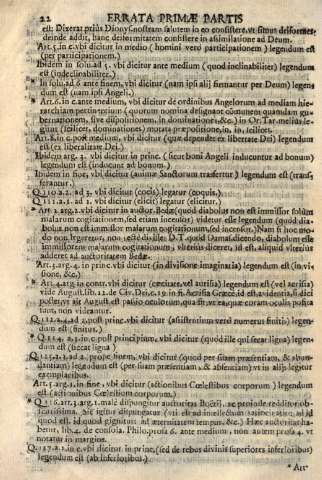 22 ERRATA PRIMÆ PARTIS
est: Dixerat prius Dionys. nostram salutem in eo consistere, ut simus deiformes,
deinde addit, hanc deiformitatem consistere in assimilatione ad Deum.
Art. 5. in c. vbi dicitur in medio ( homini vero participationem ) legendum est
(per participationem.)
Ibidem in solu. ad 5. vbi dicitur ante medium ( quod inclinabiliter) legendum
est (indeclinabiliter.)
In solu. ad 6. ante finem, vbi dicitur (nam ipsi alij firmantur per Deum) legen-
dum est (nam ipsi Angeli.)
Art. 6. in c. ante medium, vbi dicitur de ordinibus Angelorum ad mediam hie-
rarchiam pertinentium ( quorum nomina designant communem quamdam gu-
bernationem, sive dispositionem, in dominationem: &c.) in Or. Tar. melius le-
gitur (scilicet, dominationes) mutata præpositione, in, in, scilicet.
Art. 8. in c. post medium, vbi dicitur (quæ dependet ex libertate Dei) legendum
est (ex liberalitate Dei.)
Ibidem arg. 3. vbi dicitur in princ. ( sicut boni Angeli inducuntur ad bonum)
legendum est (inducunt ad bonum.)
Ibidem in fine, vbi dicitur (animæ Sanctorum trasfertur ) legendum est (trans-
ferantur.
Q. 110. a. 2. ad 3. vbi dicitur (cocis) legatur (coquis.)
Q. 111. a. 2. ad 2. vbi dicitur (elicit) legatur (elicitur.)
Art. 2. arg. 2. vbi dicitur in auctor. Bedæ (quod diabolus non est immissor solum
malarum cogitationum, sed etiam incensor) videtur esse legendum (quod dia-
bolus non est immissor malarum cogitationum, sed incensor.) Nam si hoc mo-
do non legeremus, non recte dixisset D. T. quod Damascenus dicendo, diabolum esse
immissorem malarum cogitationum, vlterius diceret, id est, aliquid vlterius
adderet ad auctoritatem Bedæ.
Art. 3. arg. 4. in princ. vbi dicitur (in divisione imaginaria) legendum est (in vi-
sione, &c.)
Art. 4. arg. in contr. vbi dicitur
vide August. lib. 22. de Civ. Dei c. 19. in fi.
Q. 112. a. 4. ad 2. post princ. vbi dicitur (assistentium vero numerus finitus) legen-
dum est (finitus.)
Q. 114. a. 3. in c. post principium, vbi dicitur (quod ille qui secat ligna) legen-
dum est (siccat ligna.)
Q. 115. a. 1. ad 2. prope finem, vbi dicitur (quod per situm præsentiam, & abun-
dantiam) legendum est (per suam præsentiam, & absentiam) vt in alijs legitur
exemplaribus.
Art. 5. arg. 1. in fine, vbi dicitur (actionibus Cœlestibus corporum ) legendum
est (actionibus Cœlestium corporum.)
Q. 116. art. 3. arg. 1. male distinguitur auctoritas Boëtij, ac proinde redditur ob-
scurissima. Sic igitur distinguatur
quod est, id quod gignitur, ad æternitatem tempus, &c.) Hæc auctoritas ha-
betur, lib. 4. de consola. Philo. prosa 6. ante medium, non autem prosa 4. vt
notatur in margine.
Q. 117. a. 2. in c. vbi dicitur in princ. (sed de rebus divinis superiores inferioribus)
legendum est (ab inferioribus.)
* Art.